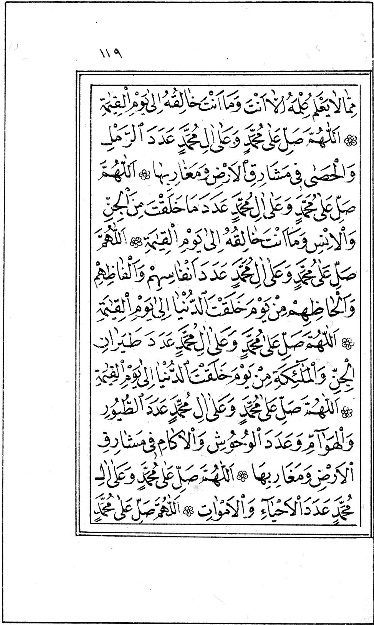 ١١٩
مِمَّا لَا يَعْلَمُ عِلْمَهُ اِلَّا اَنْتَ وَمَا اَنْتَ خَالِقُهُ اِلٰى يَوْمِ الْقِيٰمَةِ
۞ اَللّٰهُمَّ صَلِّ عَلٰى مُحَمَّدٍ وَعَلٰى اٰلِ مُحَمَّدٍ عَدَدَ الرَّمْلِ
وَالْحَصٰى فِى مَشَارِقِ الْاَرْضِ وَمَغَارِبِهَا ۞ اَللّٰهُمَّ
صَلِّ عَلٰى مُحَمَّدٍ وَعَلٰى اٰلِ مُحَمَّدٍ عَدَدَ مَا خَلَقْتَ مِنَ الْجِنِّ
وَالْاِنْسِ وَمَا اَنْتَ خَالِقُهُ اِلٰى يَوْمِ الْقِيٰمَةِ ۞ اَللّٰهُمَّ
صَلِّ عَلٰى مُحَمَّدٍ وَعَلٰى اٰلِ مُحَمَّدٍ عَدَدَ اَنْفَاسِهِمْ وَاَلْفَاظِهِمْ
وَاَلْحَاظِهِمْ مِنْ يَوْمِ خَلَقْتَ الدُّنْيَا اِلٰى يَوْمِ الْقِيٰمَةِ
۞ اَللّٰهُمَّ صَلِّ عَلٰى مُحَمَّدٍ وَعَلٰى اٰلِ مُحَمَّدٍ عَدَدَ طَيَرَانِ
الْجِنِّ وَالْمَلٰئِكَةِ مِنْ يَوْمِ خَلَقْتَ الدُّنْيَا اِلٰى يَوْمِ الْقِيٰمَةِ
۞ اَللّٰهُمَّ صَلِّ عَلٰى مُحَمَّدٍ وَعَلٰى اٰلِ مُحَمَّدٍ عَدَدَ الطُّيُورِ
وَالْهَوَآمِّ وَعَدَدَ الْوُحُوشِ وَالْاٰكَامِ فِى مَشَارِقِ
الْاَرْضِ وَمَغَارِبِهَا ۞ اَللّٰهُمَّ صَلِّ عَلٰى مُحَمَّدٍ وَعَلٰى اٰلِ
مُحَمَّدٍ عَدَدَ الْاَحْيَاءِ وَالْاَمْوَاتِ ۞ اَللّٰهُمَّ صَلِّ عَلٰى مُحَمَّدٍ